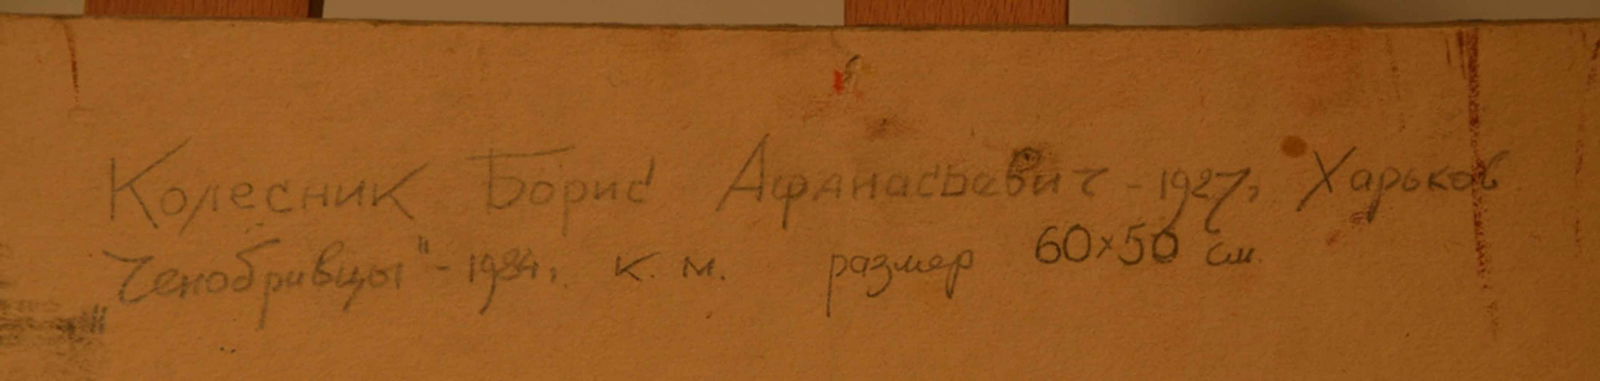 Колесник Борис Афанасьевич - 1927, Харьков
"Ченобривцы" - 1984, к. м. размер 60×50 см.